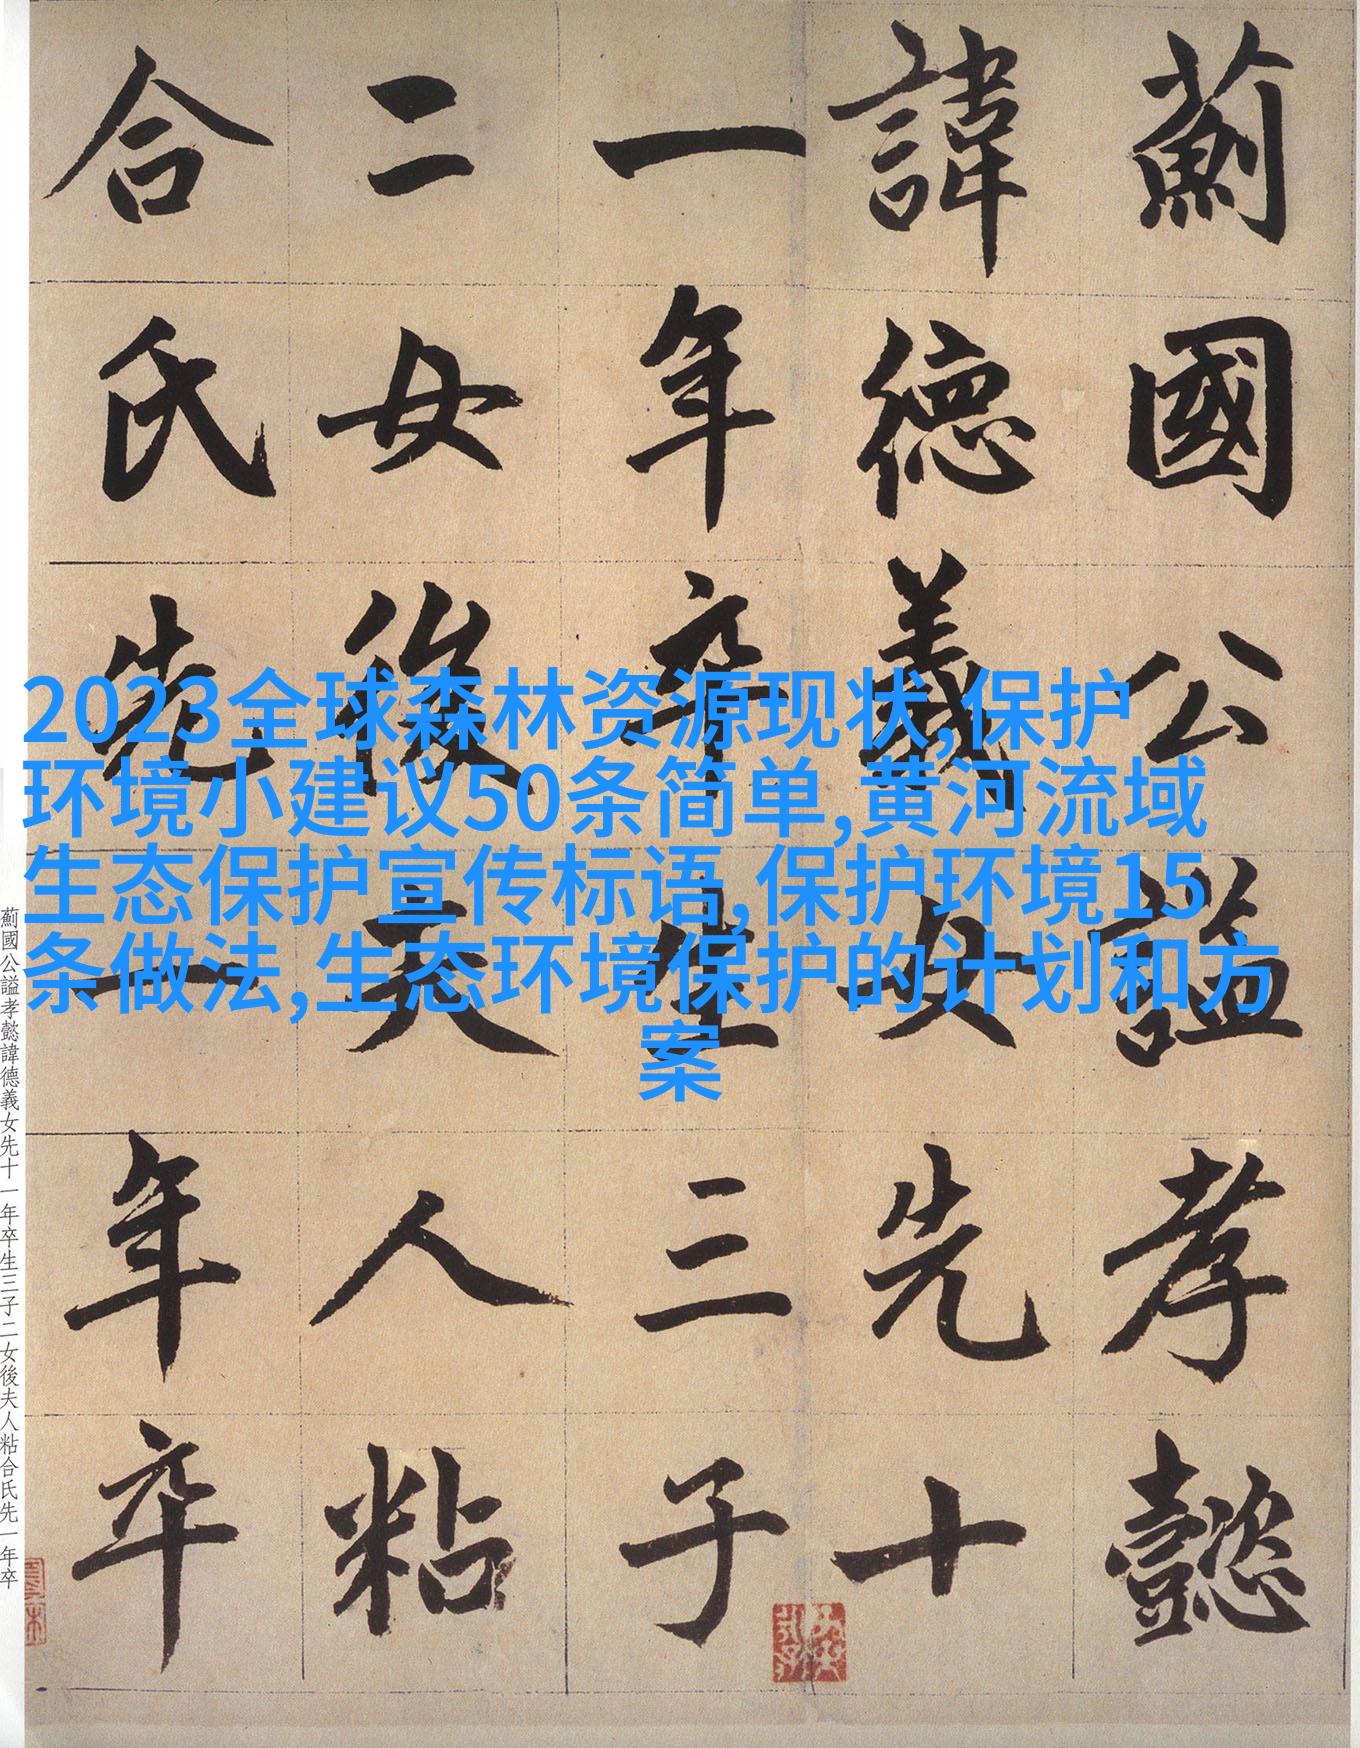 薊國公謚孝懿
諱德義女先十
一年卒生三子
二女後夫人粘
合氏先一年卒
2023全球森林资源现状,保护
环境小建议50条简单,黄河流域
生态保护宣传标语,保护环境15
条做法,生态环境保护的计划和方
案
薊國公謚孝懿諱德義女先十一年卒生三子二女後夫人粘合氏先一年卒